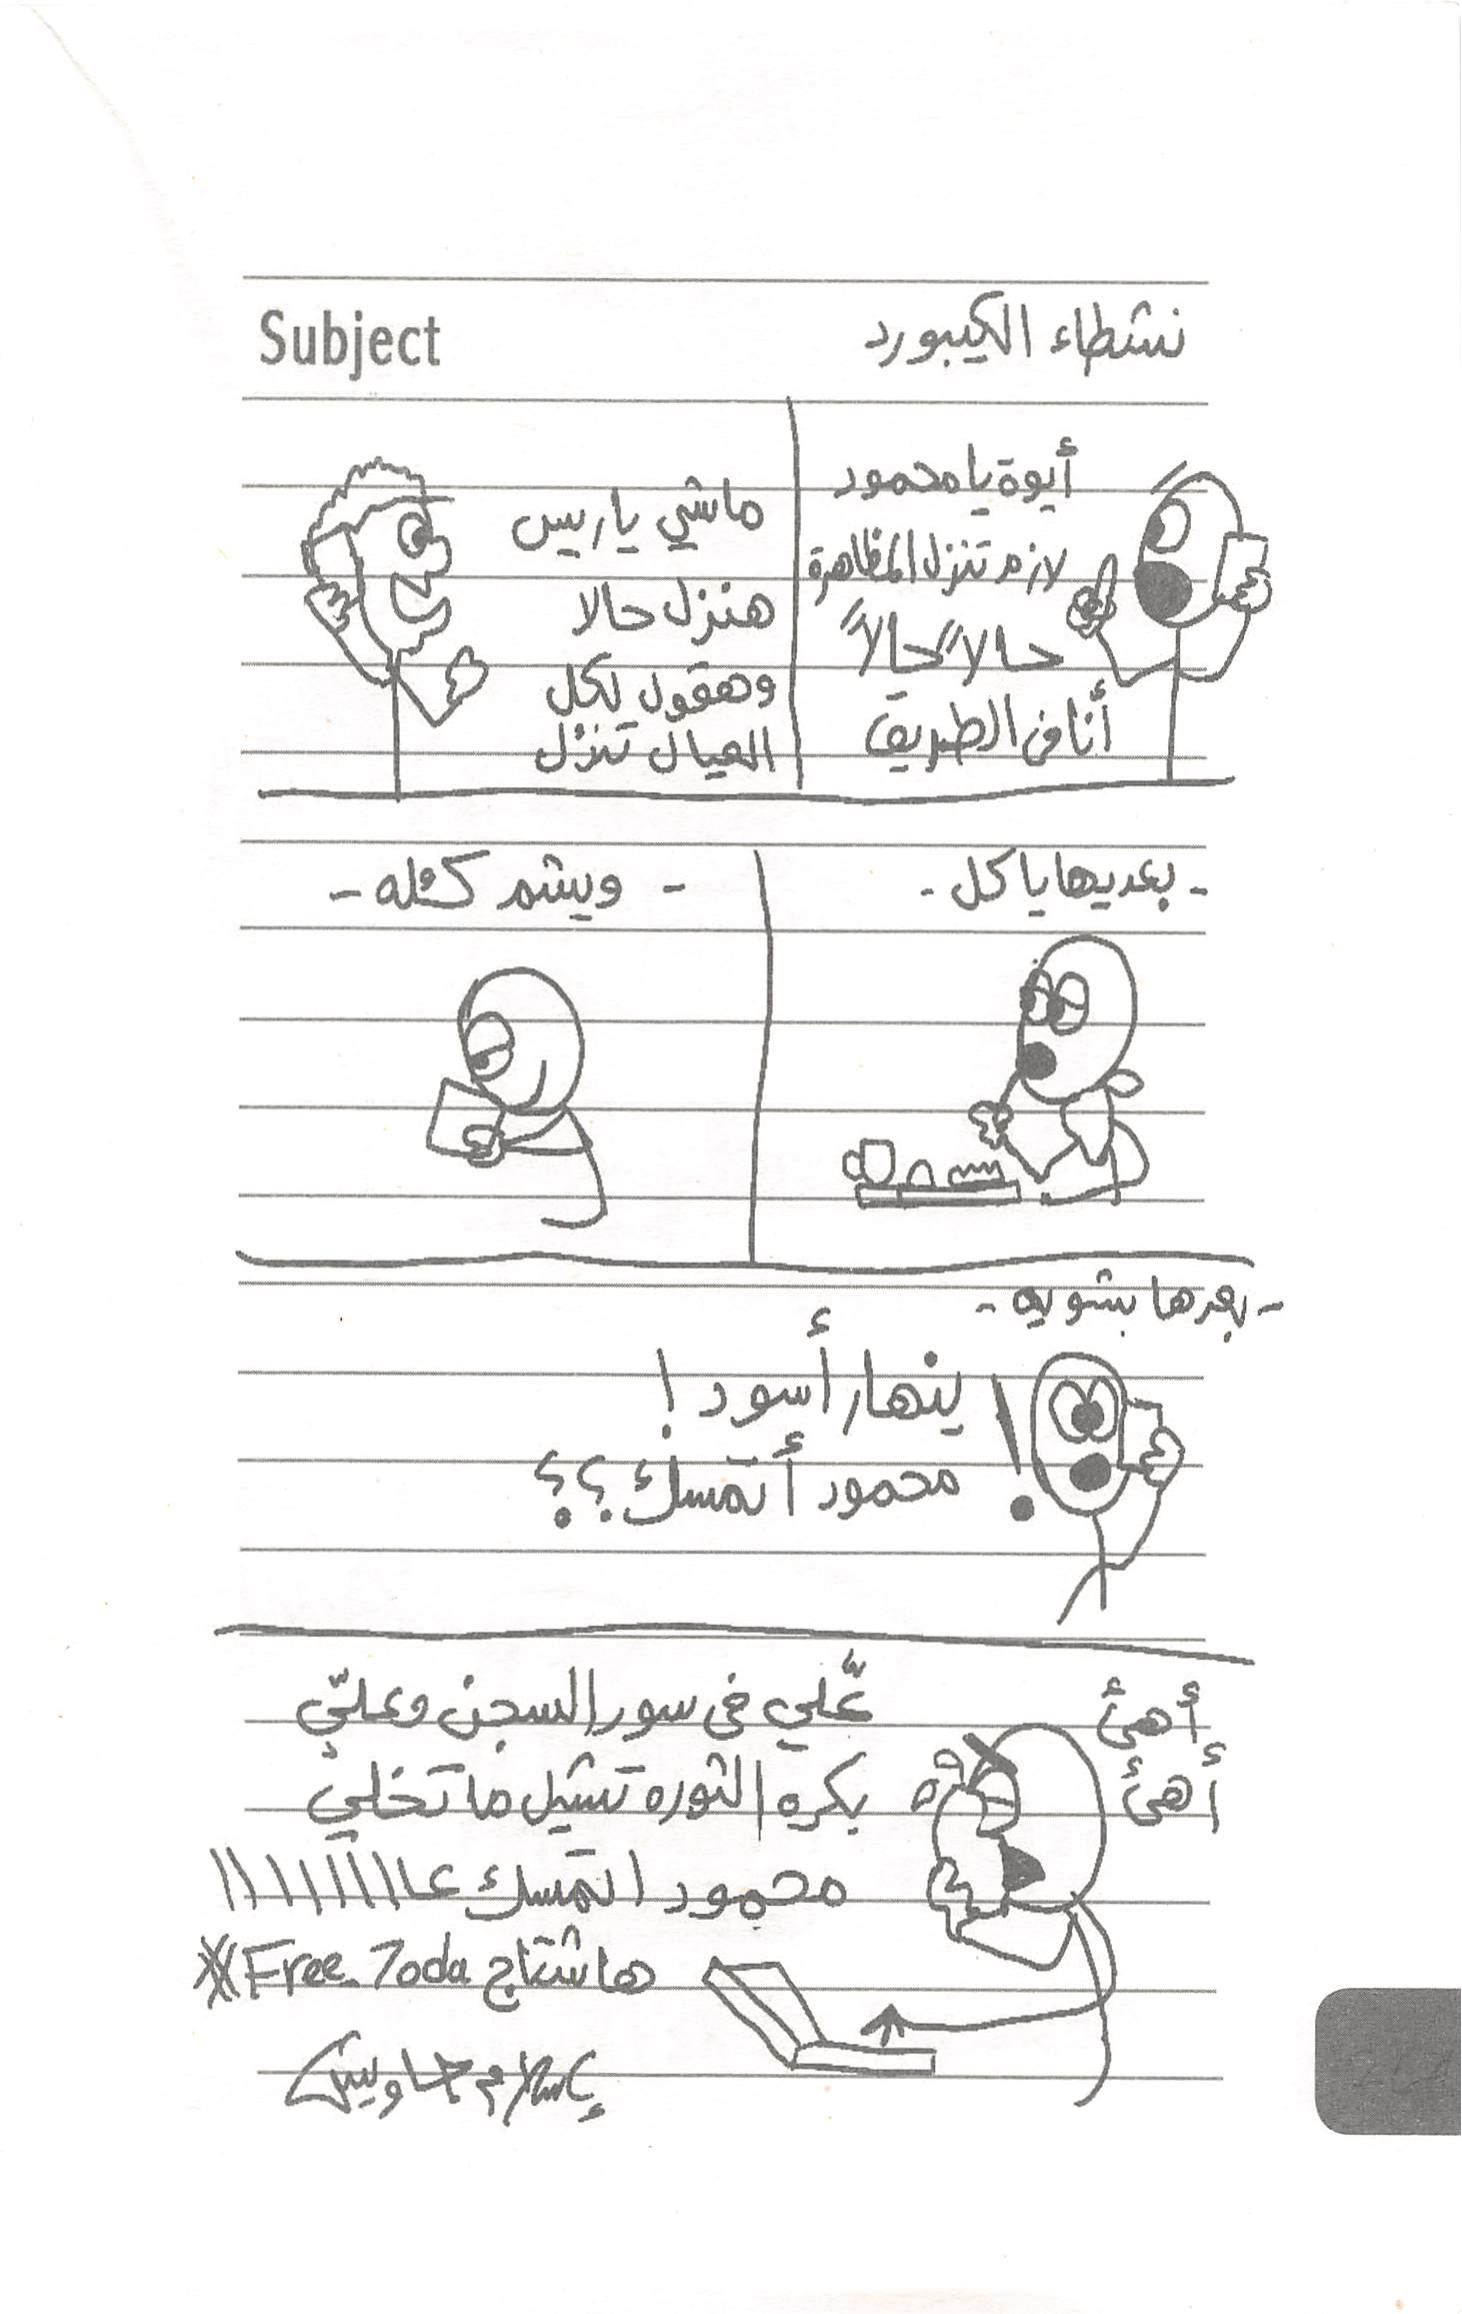 Subject
نشطاء الكيبورد
أيوة يا محمود
لازم تنزل المظاهرة
حالاً حالاً
أنا فى الطريق
ماشي ياريس
هنزل حالا
وهقول لكل
العيال تنزل
- بعديها ياكل -
- ويشم كلله -
- بعدها بشويه -
ينهار أسود !
محمود أتمسك ؟؟
!
أهئ
أهئ
عّلي فى سور السجن وعليّ
بكره الثوره تشيل ما تخلي
محمود اتمسك عااااااااا
هاشتاج Free_7oda #
إسلام جاويش